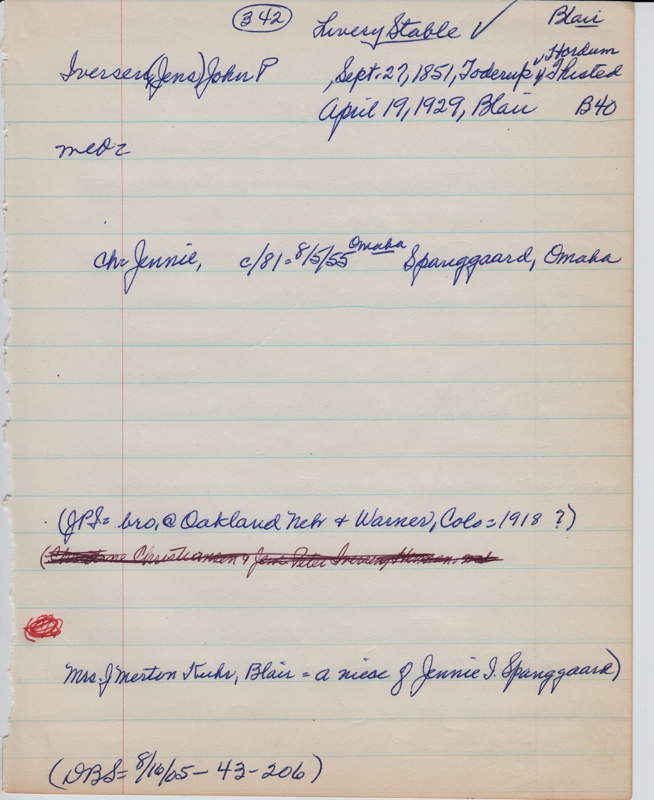 342
Livery Stable ✓ Blair
Iversen, (Jens) John P , Sept. 27, 1851, Toderup, Hordum, Thisted
April 19, 1929, Blair B40
md=
ch= Jennie, c/81=8/5/55 Omaha Spanggaard, Omaha
(JPS= bro, @ Oakland Nebr & Warner, Colo=1918 ?)
Christiansen & Jens Peter Iversen
Mrs. J Merton Kuhr, Blair = a niese of Jennie I. Spanggaard)
(DBS= 8/16/05-43-206)